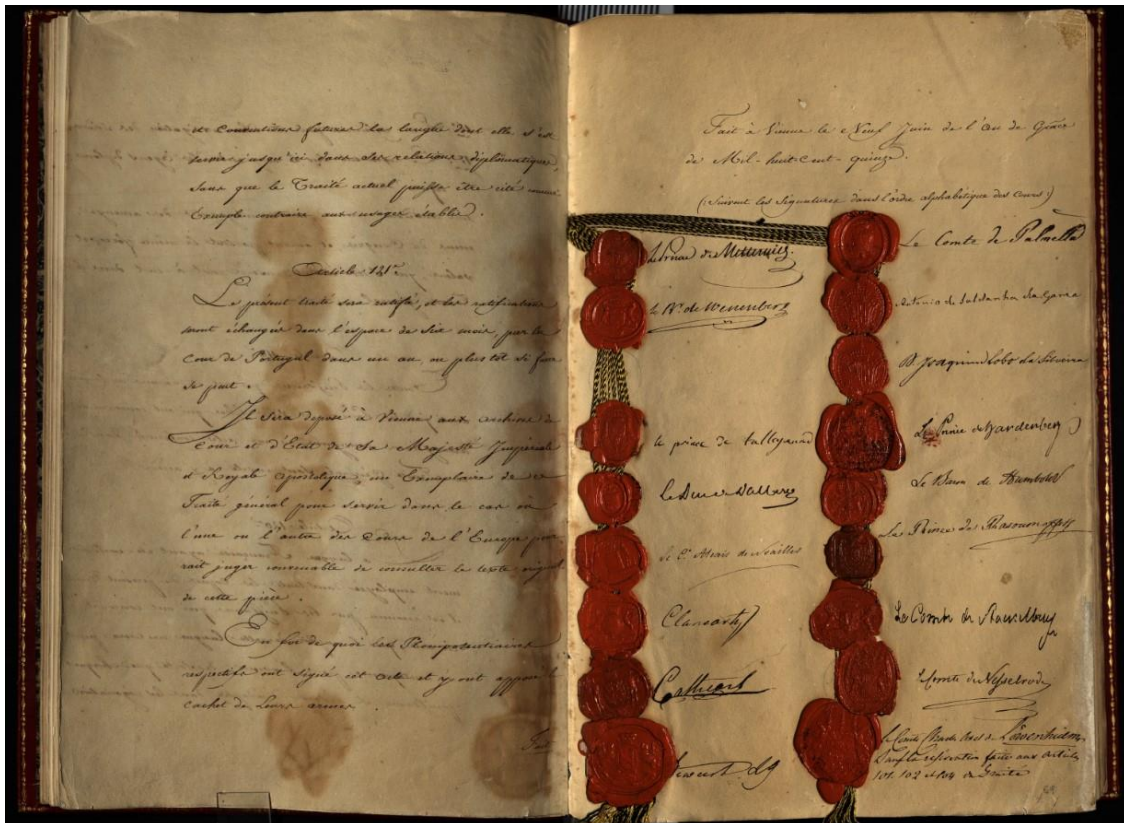 et Conventions futures la langue dont elle s'est
servie jusqu'ici dans ses relations diplomatiques,
sans que le Traité actuel puisse être cité comme
Exemple contraire aux usages établis.
Article 121
Le présent traité sera ratifié, et les ratifications
seront échangées dans l'espace de six mois, par la
Cour de Portugal dans un an, ou plus tôt si faire
se peut.
Il sera deposé à Vienne aux archives de
Cour et d'Etat de Sa Majesté Impériale
et Royale apostolique, un Exemplaire de ce
Traité général pour servir dans le cas où
l'une ou l'autre des Cours de l'Europe pour
rait juger convenable de consulter le texte original
de cette pièce.
En foi de quoi les Plénipotentiaires
respectifs ont signé cet acte et y ont apposé le
cachet de leurs armes.
Fait
Fait à Vienne le Neuf Juin de l'an de Grâce
de Mil-huit-cent-quinze.
(Suivent les signatures dans l'ordre alphabétique des Cours:)
Le Prince de Metternich
le Bn. de Wessenberg
le prince de talleyrand
le Duc de Dalberg
le Cte Alexis de Noailles
Clancarty
Cathcart
Stewart
Le Comte de Palmella
Antonio de Saldanha da Gama
D. Joaquim Lobo da Silveira
Le Prince de Hardenberg
Le Baron de Humboldt
Le Prince de Rasoumoffsky
Le Comte de Stackelberg
Le Comte de Nesselrode
Le Comte Charles Axel de Löwenhielm
Sauf la réservation faite aux articles
101. 102 et 104 du Traité